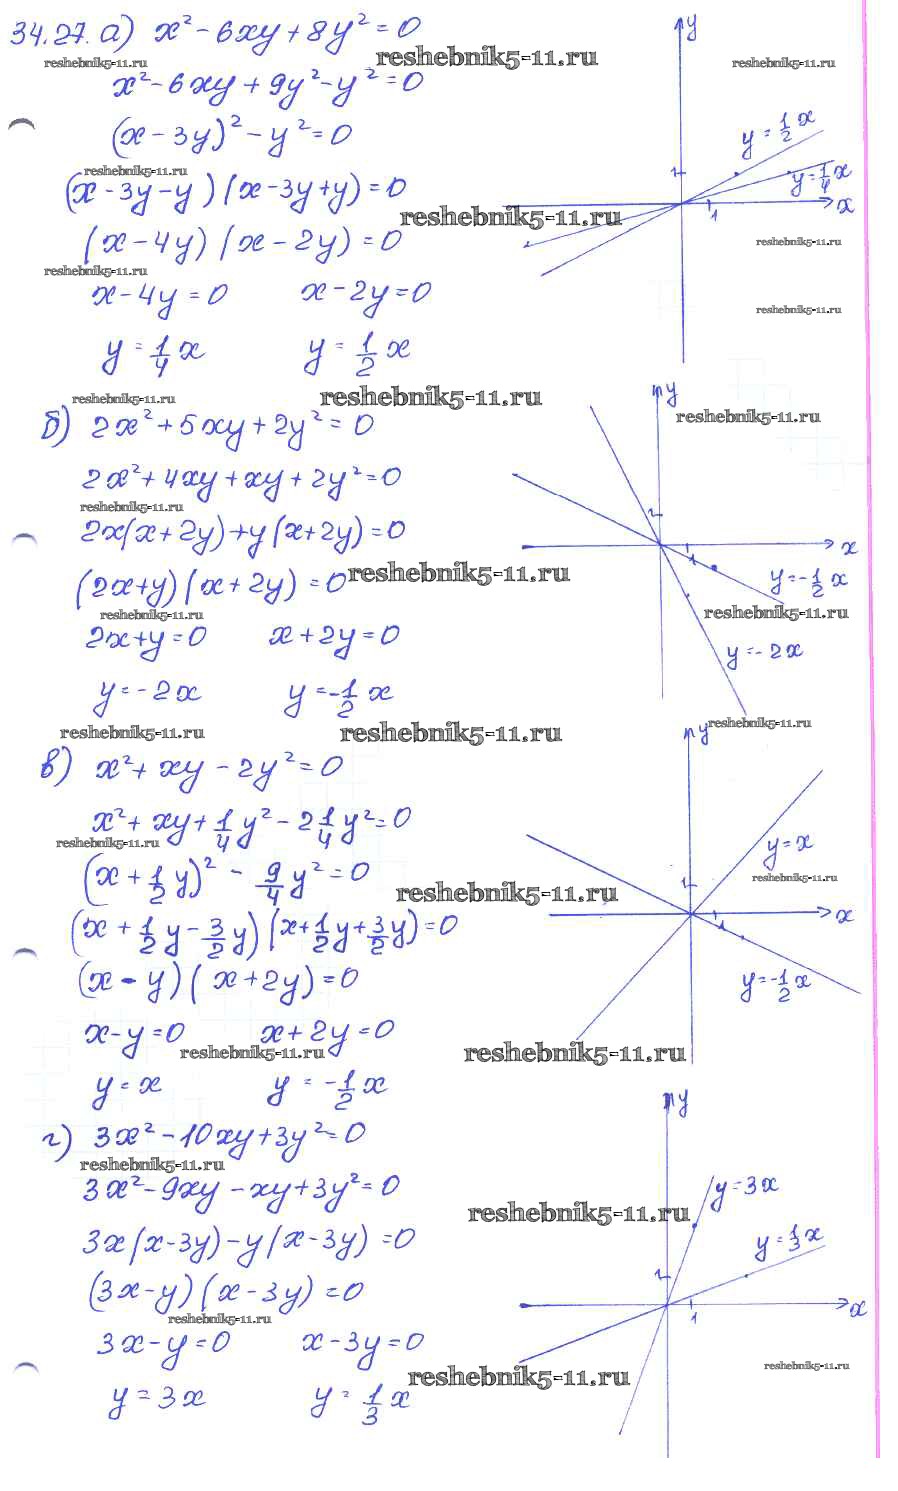 34.27. а) x² - 6xy + 8y² = 0
reshebnik5-11.ru reshebnik5-11.ru reshebnik5-11.ru
x² - 6xy + 9y² - y² = 0
(x - 3y)² - y² = 0
reshebnik5-11.ru
(x - 3y - y)(x - 3y + y) = 0
reshebnik5-11.ru
(x - 4y)(x - 2y) = 0
reshebnik5-11.ru reshebnik5-11.ru
x - 4y = 0 x - 2y = 0
reshebnik5-11.ru
y = 1/4 x y = 1/2 x
y
y = 1/2 x
y = 1/4 x
1
1
x
reshebnik5-11.ru reshebnik5-11.ru reshebnik5-11.ru
б) 2x² + 5xy + 2y² = 0
2x² + 4xy + xy + 2y² = 0
reshebnik5-11.ru
2x(x + 2y) + y(x + 2y) = 0
(2x + y)(x + 2y) = 0
reshebnik5-11.ru
reshebnik5-11.ru reshebnik5-11.ru
2x + y = 0 x + 2y = 0
y = -2x y = -1/2 x
y
1
1
x
y = -1/2 x
y = -2x
reshebnik5-11.ru reshebnik5-11.ru reshebnik5-11.ru
в) x² + xy - 2y² = 0
x² + xy + 1/4 y² - 2 1/4 y² = 0
reshebnik5-11.ru
(x + 1/2 y)² - 9/4 y² = 0
reshebnik5-11.ru reshebnik5-11.ru
(x + 1/2 y - 3/2 y)(x + 1/2 y + 3/2 y) = 0
(x - y)(x + 2y) = 0
x - y = 0 x + 2y = 0
reshebnik5-11.ru reshebnik5-11.ru
y = x y = -1/2 x
y
y = x
1
1
x
y = -1/2 x
г) 3x² - 10xy + 3y² = 0
reshebnik5-11.ru
3x² - 9xy - xy + 3y² = 0
reshebnik5-11.ru
3x(x - 3y) - y(x - 3y) = 0
(3x - y)(x - 3y) = 0
reshebnik5-11.ru
3x - y = 0 x - 3y = 0
reshebnik5-11.ru reshebnik5-11.ru
y = 3x y = 1/3 x
y
y = 3x
y = 1/3 x
1
1
x